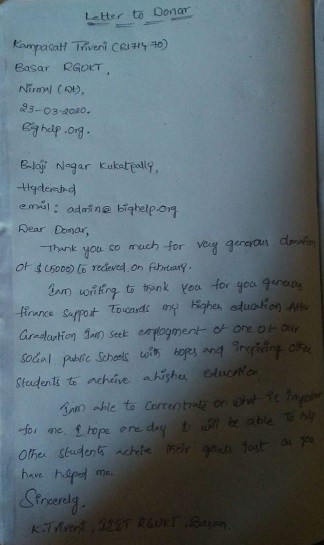 Letter to Donar
Kampasati Triveni (R171470)
Basar RGUKT,
Nirmal (Dt),
23-03-2020.
Bighelp.org.
Balaji Nagar Kukatpally,
Hyderabad
email: admin@bighelp.org
Dear Donar,
Thank you so much for very generous donation
of $ (5000) to recieved on february.
Iam writing to thank you for you generous
finance support Towards my higher education After
Graduation Iam seek employment of one of our
social public schools with hopes and inspiring other
students to acheive a higher education
Iam able to concentrate on what is importan
for me. I hope one day I will be able to help
Other students acheive their goals just as you
have helped me.
Sincerely,
K.Triveni, IIIT RGUKT, Basar.